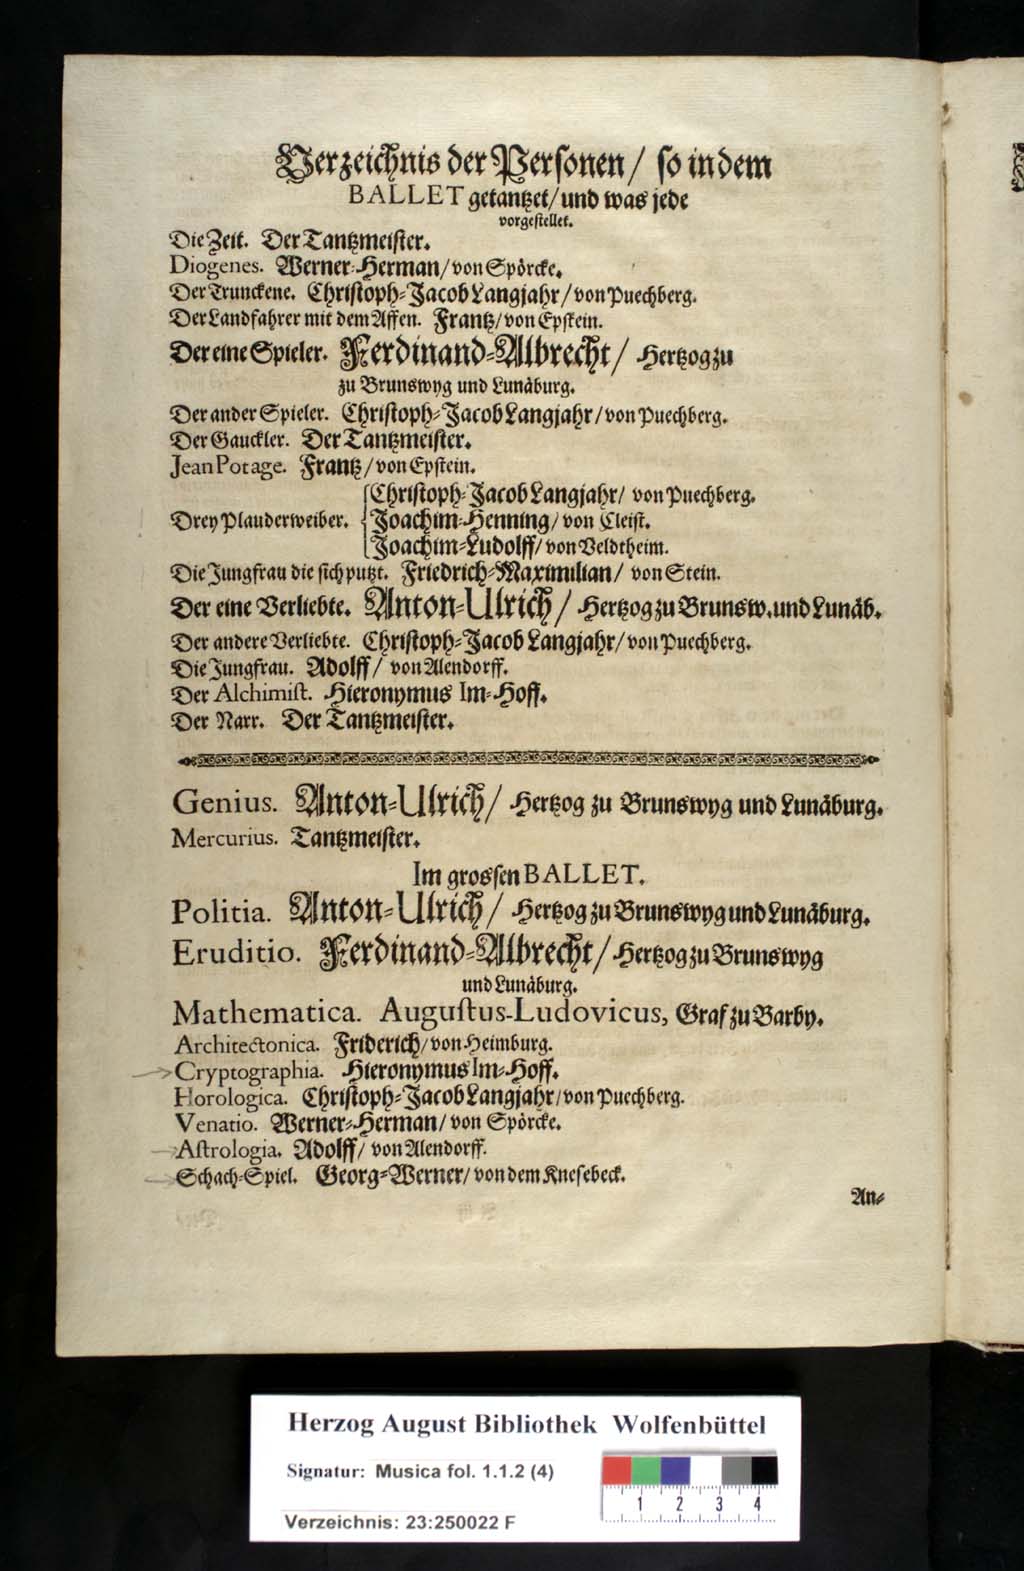 Verzeichnis der Personen / so in dem
BALLET getantzet / und was jede
vorgestellet.
Die Zeit. Der Tantzmeister.
Diogenes. Werner-Herman / von Spörcke.
Der Trunckene. Christoph-Jacob Langjahr / von Puechberg.
Der Landfahrer mit dem Affen. Frantz / von Epstein.
Der eine Spieler. Ferdinand-Albrecht / Hertzog zu
zu Brunswyg und Lunäburg.
Der ander Spieler. Christoph-Jacob Langjahr / von Puechberg.
Der Gauckler. Der Tantzmeister.
Jean Potage. Frantz / von Epstein.
Christoph-Jacob Langjahr / von Puechberg.
Drey Plauderweiber. Joachim-Henning / von Cleist.
Joachim-Ludolff / von Veldtheim.
Die Jungfrau die sich putzt. Friedrich-Maximilian / von Stein.
Der eine Verliebte. Anton-Ulrich / Hertzog zu Brunsw. und Lunäb.
Der andere Verliebte. Christoph-Jacob Langjahr / von Puechberg.
Die Jungfrau. Adolff / von Alendorff.
Der Alchimist. Hieronymus Im-Hoff.
Der Narr. Der Tantzmeister.
Genius. Anton-Ulrich / Hertzog zu Brunswyg und Lunäburg.
Mercurius. Tantzmeister.
Im grossen BALLET.
Politia. Anton-Ulrich / Hertzog zu Brunswyg und Lunäburg.
Eruditio. Ferdinand-Albrecht / Hertzog zu Brunswyg
und Lunäburg.
Mathematica. Augustus-Ludovicus, Graf zu Barby.
Architectonica. Friderich / von Heimburg.
Cryptographia. Hieronymus Im-Hoff.
Horologica. Christoph-Jacob Langjahr / von Puechberg.
Venatio. Werner-Herman / von Spörcke.
Astrologia. Adolff / von Alendorff.
Schach-Spiel. Georg-Werner / von dem Knesebeck.
An-
Herzog August Bibliothek Wolfenbüttel
Signatur: Musica fol. 1.1.2 (4)
1 2 3 4
Verzeichnis: 23:250022 F